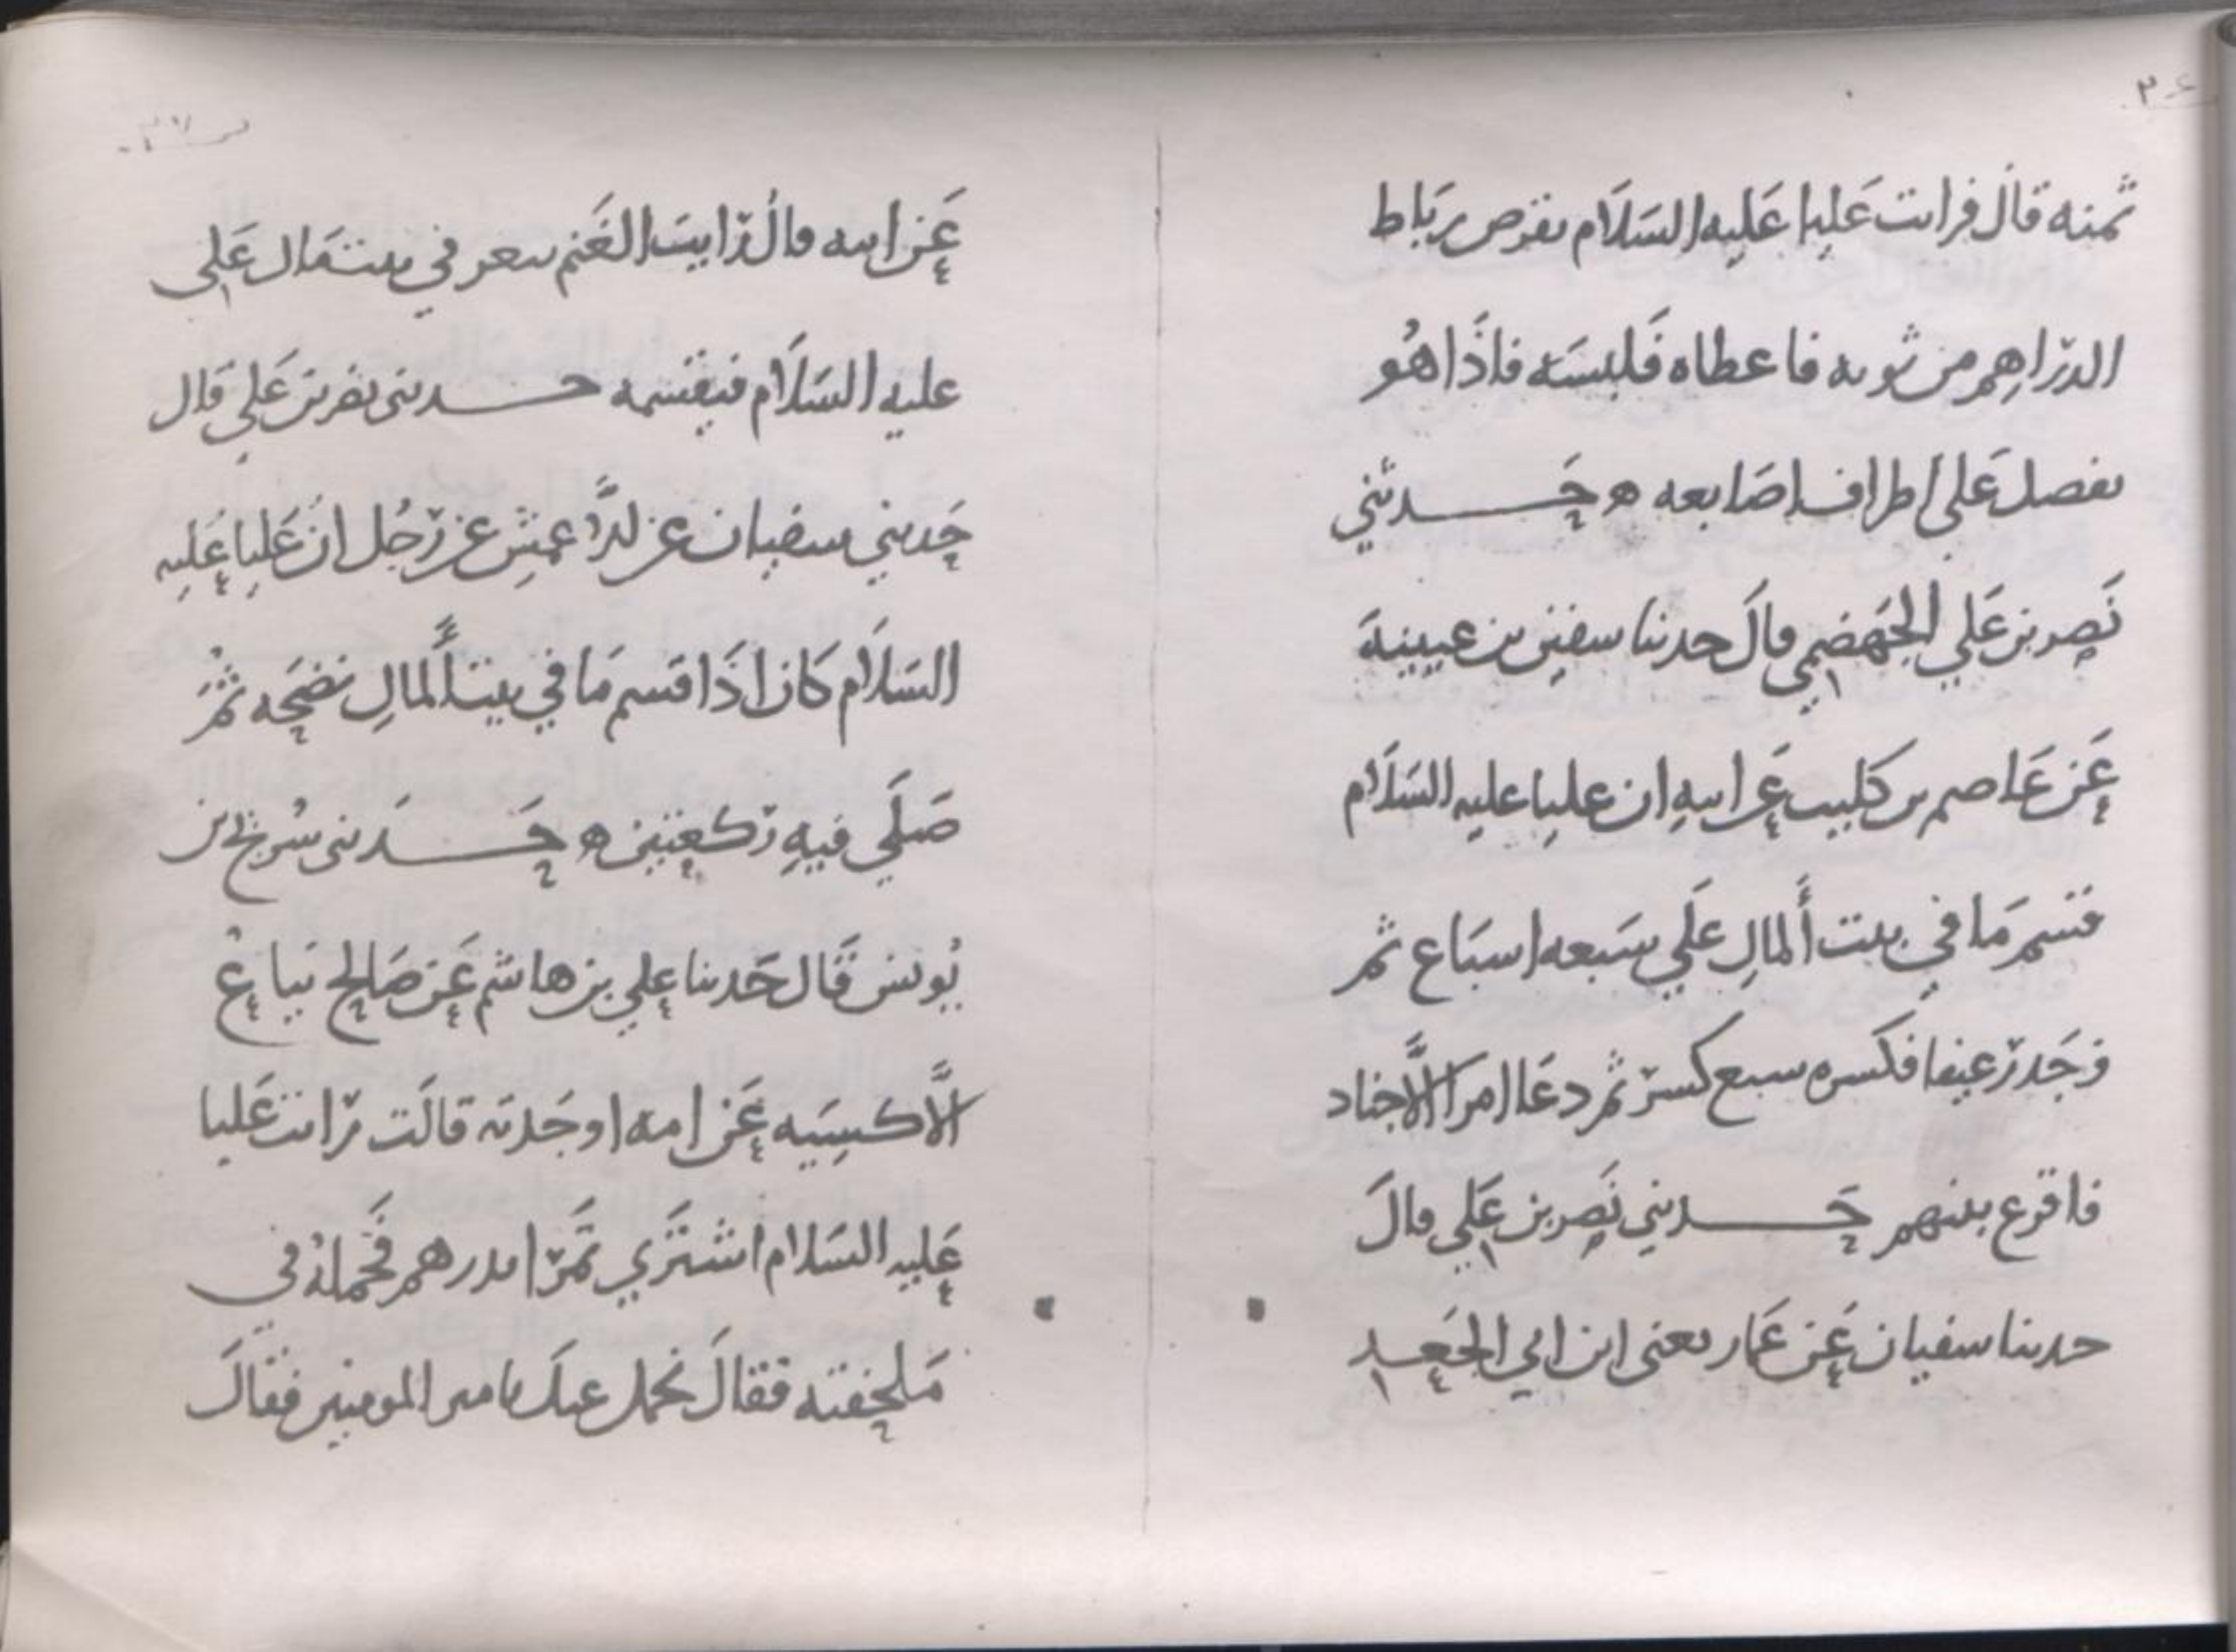 ٣٦
ثمنه قال فرايت عَليا عَليه السَلَام يقرض رِبَاط
الدّراهِم من ثوبه فاعطاه فَلبسَه فاذَا هُو
يفصل عَلى اطراف اصَابعه ه حَـــدثني
نَصر بن عَلي الجَهضمِي قالَ حدثنا سفين بن عيينة
عَن عَاصم بن كَليب عَن ابيهِ ان عليا عليه السَلَام
قسم مَا في بيت اَلمالِ عَلَي سَبعه اسبَاع ثم
وَجَد رغيفا فكسره سبع كسر ثم دعَا امرَا الاَجناد
فاقرع بينهم حَـــدثني نَصر بن عَلي قالَ
حدثنا سفيان عَن عَمار يعنى ابن ابي الجَعـد
٣٧
عَن ابيه قالُ رَايتَ الغَنم تبعر في بيت مَال عَلى
عليه السَلَام فيقسمه حـــدثنى نضر بن عَلي قَال
حَدثني سفيان عن الاَعمشِ عن رَجُل انُ عَليا عَليه
السَلَام كَان اذَا قسم مَا في بيت اَلمالِ نضحَه ثمُ
صَلَي فيهِ ركعتين ه حَـــدثنى سُريج بن
يُونس قَال حَدثنا علي بن هاشم عَن صَالح بَياع
الاَكسِيَه عَن امه او جَدته قالَت رَايت عَليا
عَليه السَلام اشتَرَي تَمرًا بدرهم فَحَملهُ في
مَلحفته فقالَ نحمل عنكَ يا مير المومنين فقالَ